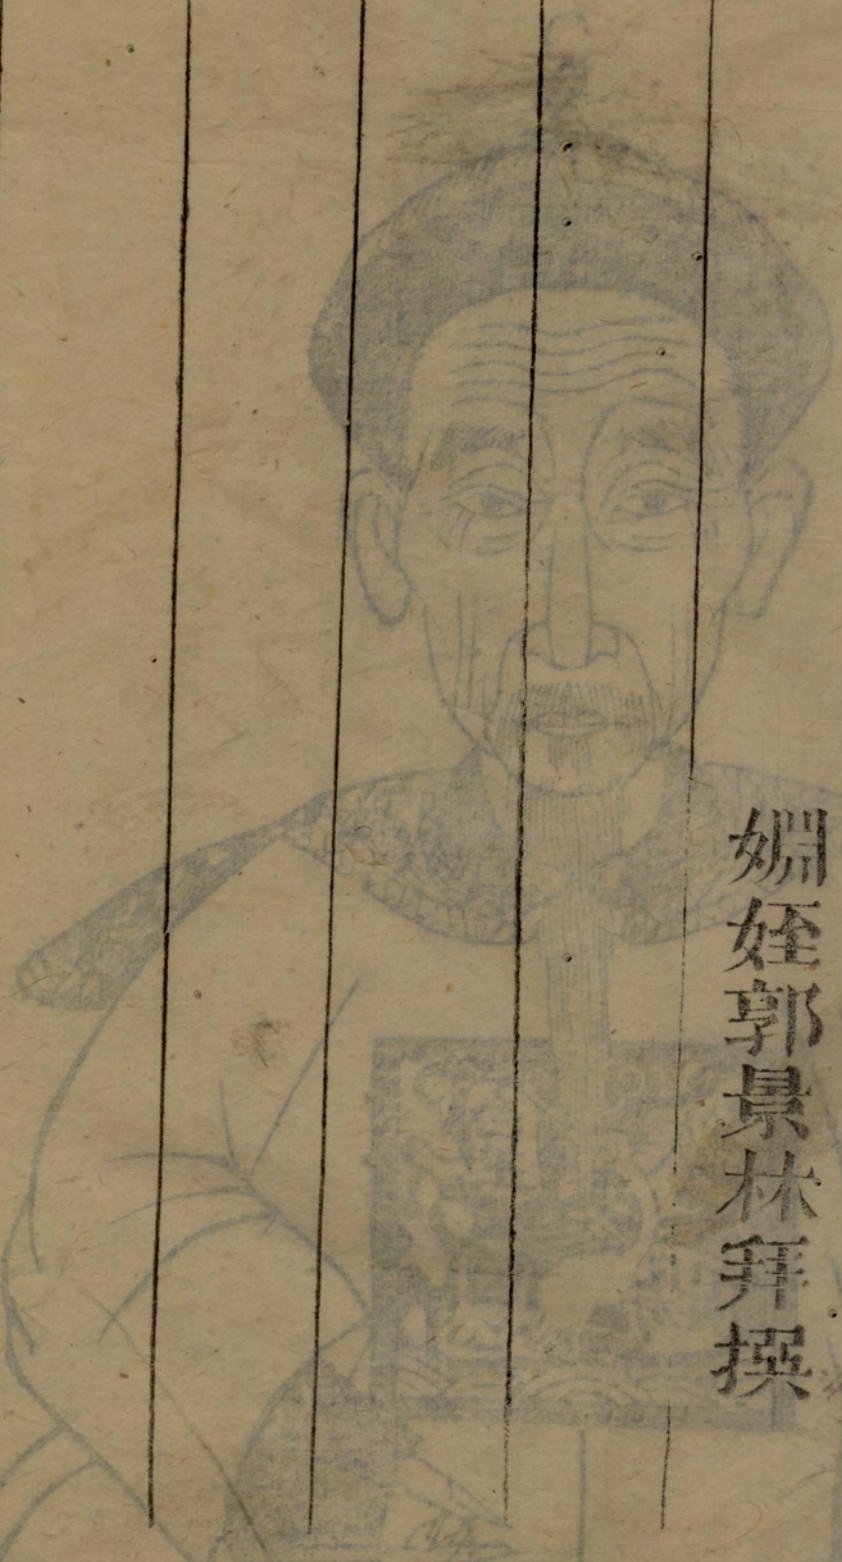 姻姪郭景林拜撰